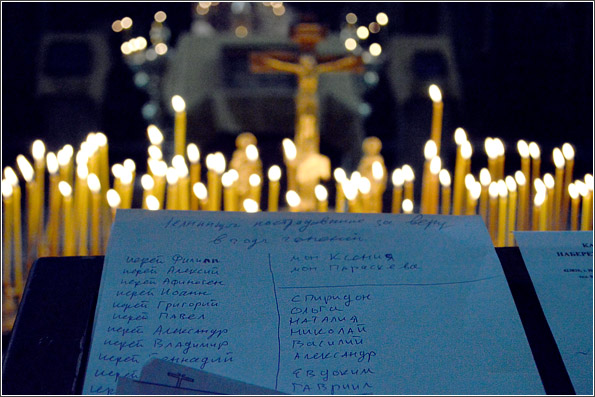 пострадавшие за веру
в годы гонений
иерей Филипп
иерей Алексий
иерей Афиноген
иерей Иоанн
иерей Григорий
иерей Павел
иерей Александр
иерей Владимир
иерей Геннадий
иерей
мон Ксения
мон Параскева
СПИРИДОН
ОЛЬГА
НАТАЛИЯ
НИКОЛАЙ
ВАСИЛИЙ
АЛЕКСАНДР
ЕВДОКИМ
ГАВРИИЛ
НАБЕРЕ